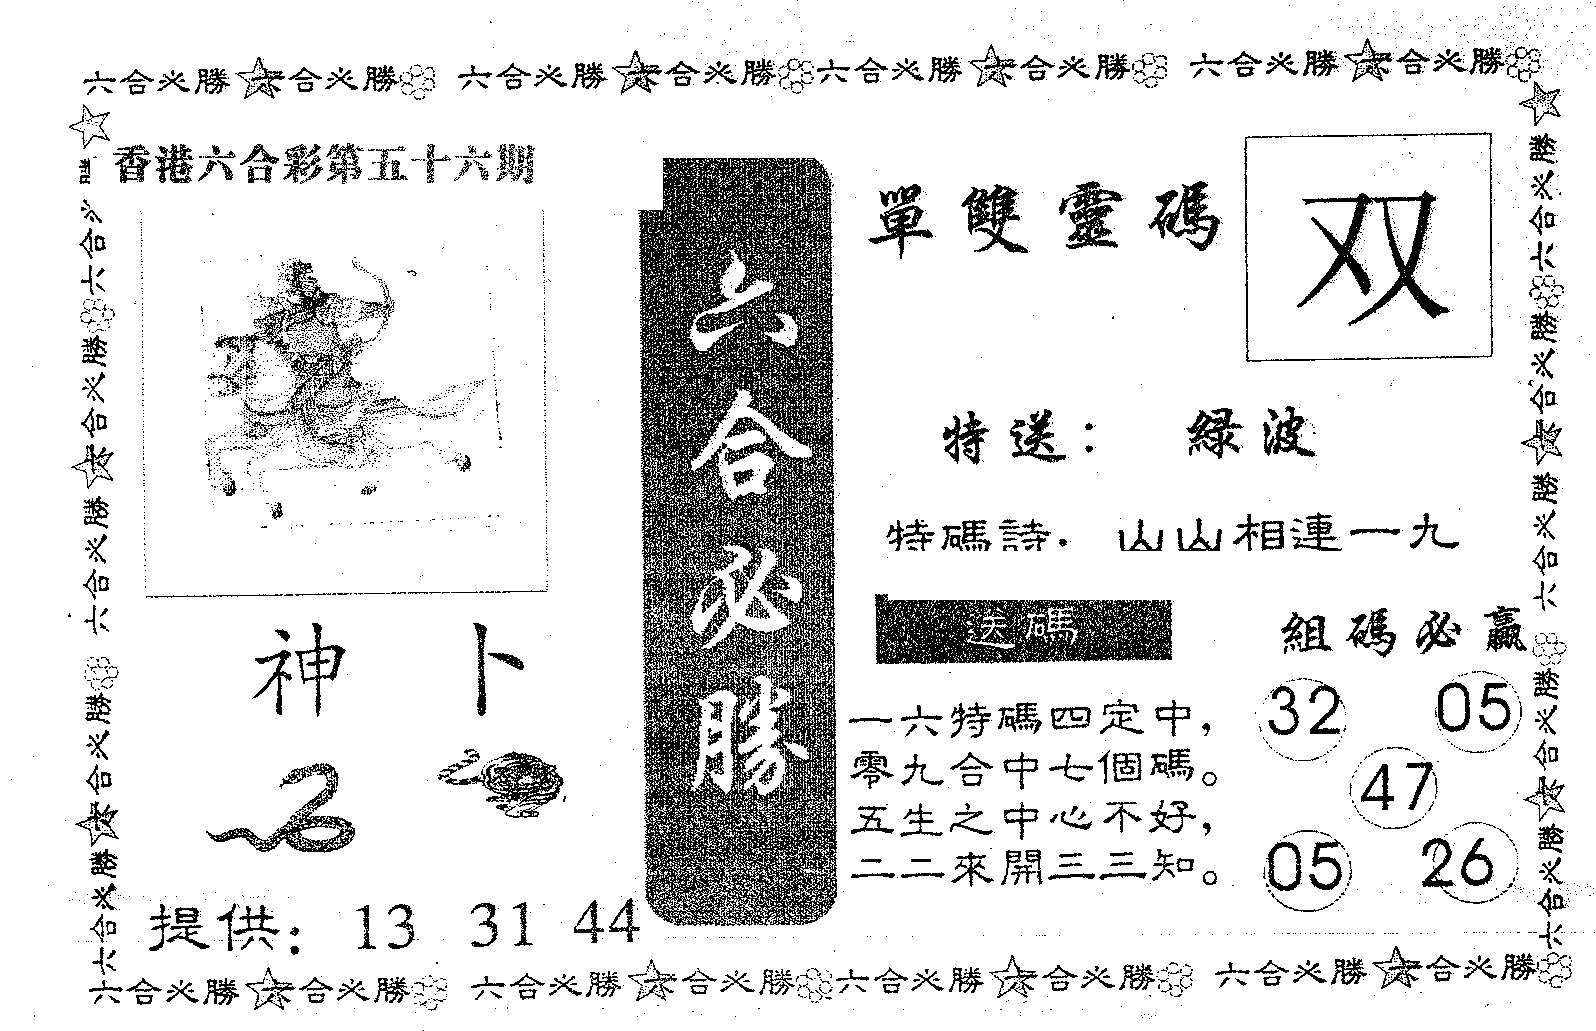 六合必勝 六合必勝 六合必勝 六合必勝 六合必勝 六合必勝 六合必勝 六合必勝
香港六合彩第五十六期
六合必勝
神 卜
提供: 13 31 44
單雙靈碼
双
特送: 緑波
特碼詩. 山山相連一九
送碼
一六特碼四定中,
零九合中七個碼。
五生之中心不好,
二二來開三三知。
組碼必贏
32 05
47
05 26
六合必勝 六合必勝 六合必勝 六合必勝
六合必勝 六合必勝 六合必勝 六合必勝
六合必勝 六合必勝 六合必勝 六合必勝 六合必勝 六合必勝 六合必勝 六合必勝